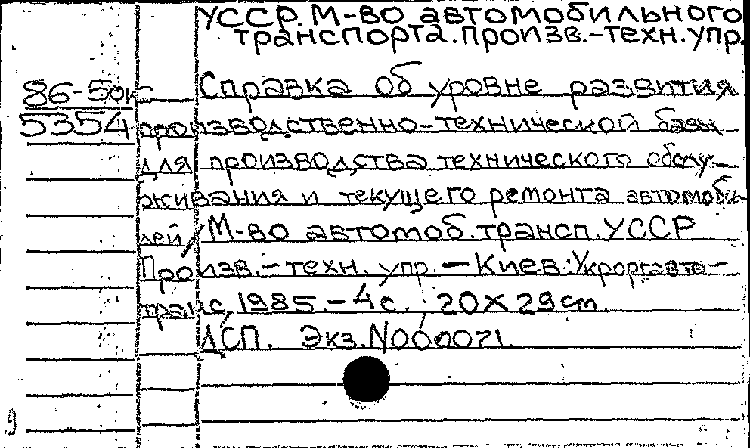 УССР. М-во автомобильного
транспорта. Произв.-техн. упр.
86-50к Справка об уровне развития
5354 производственно-технической базы
для производства технического обслу-
живания и текущего ремонта автомоби-
лей / М-во автомоб. трансп. УССР
Произв.-техн. упр. – Киев: Укроргавто-
транс, 1985. – 4 с. ; 20 X 29 cm
ДСП. Экз. N000071.